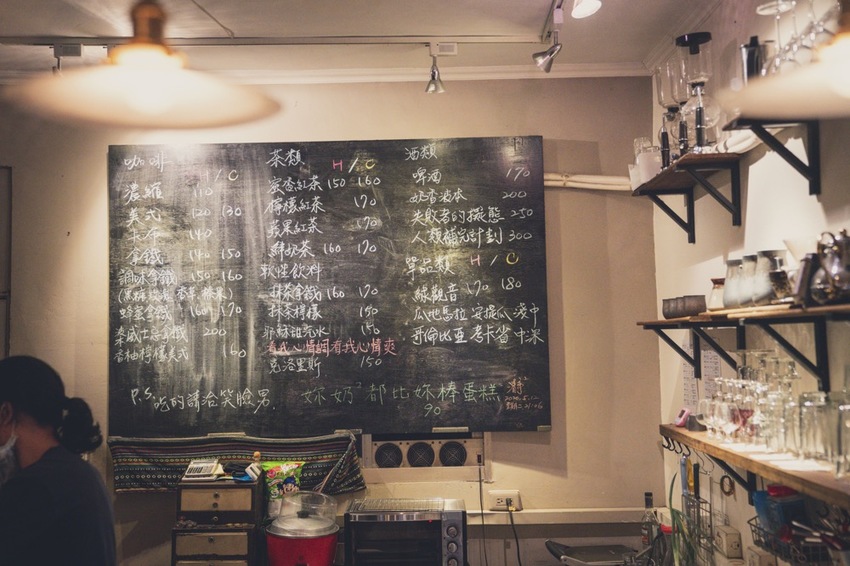 咖啡
H / C
濃縮 110
美式 120 130
卡布 140
拿鐵 140 150
調味拿鐵 150 160
蜂蜜拿鐵 160 170
200
香柚檸檬美式 160
茶類 H / C
蜜香紅茶 150 160
檸檬紅茶 170
蘋果紅茶 170
鮮奶茶 160 170
軟性飲料
抹茶拿鐵 160 170
抹茶檸檬 170
150
看我心情調看我心情爽
克洛里斯 150
酒類
啤酒 170
奶香波本 200
失敗者的擬態 250
人類補完計劃 300
單品類 H / C
綠觀音 170 180
瓜地馬拉 安提瓜 淺中
哥倫比亞 老卡省 中深
P.S. 吃的請洽笑臉男.
妳奶都比妳棒蛋糕
90